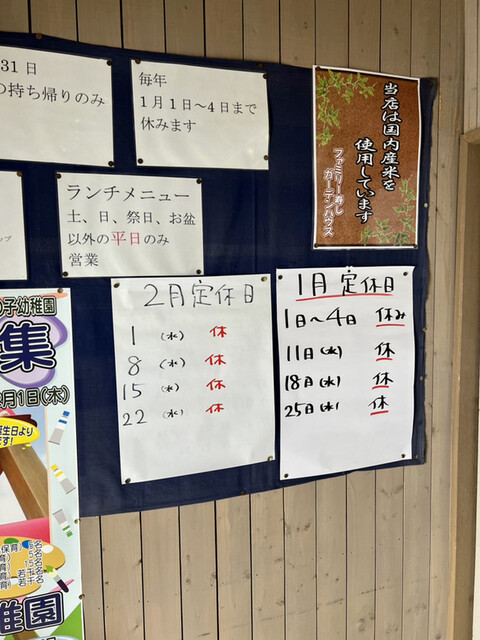 31日
の持ち帰りのみ
毎年
1月1日～4日まで
休みます
当店は国内産米を
使用しています
ファミリー寿し
ガーデンハウス
ップ
ランチメニュー
土、日、祭日、お盆
以外の平日のみ
営業
2月定休日
1 (水) 休
8 (水) 休
15 (水) 休
22 (水) 休
1月定休日
1日～4日 休み
11日(水) 休
18日(水) 休
25日(水) 休
の子幼稚園
集
月1日(木)
生日より
です!
稚園